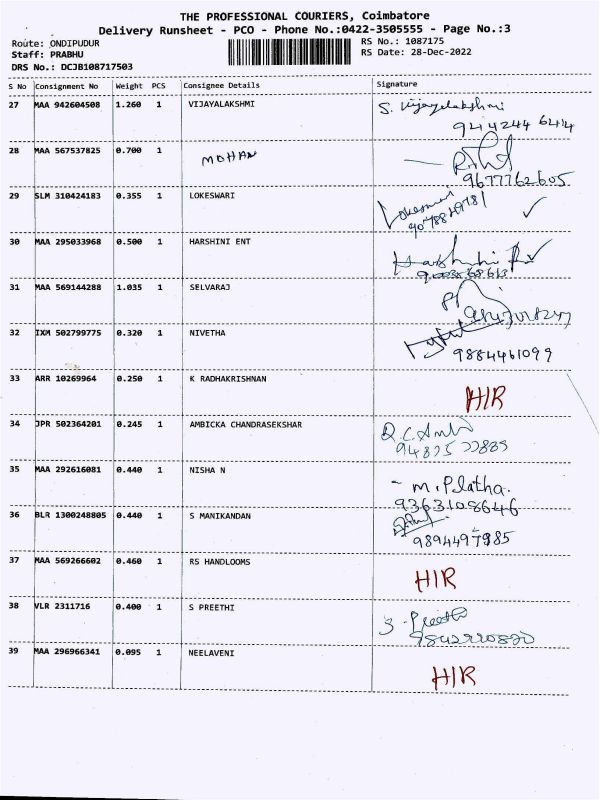 THE PROFESSIONAL COURIERS, Coimbatore
Delivery Runsheet - PCO - Phone No.:0422-3505555 - Page No.:3
Route: ONDIPUDUR
Staff: PRABHU
DRS No.: DCJB108717503
RS No.: 1087175
RS Date: 28-Dec-2022
S No Consignment No Weight PCS Consignee Details Signature
27 MAA 942604508 1.260 1 VIJAYALAKSHMI S. Vijayalakshmi
944244 6414
28 MAA 567537825 0.700 1 MOHAN
9677762605
29 SLM 310424183 0.355 1 LOKESWARI
30 MAA 295033968 0.500 1 HARSHINI ENT Harshini
31 MAA 569144288 1.035 1 SELVARAJ
32 IXM 502799775 0.320 1 NIVETHA
9884461099
33 ARR 10269964 0.250 1 K RADHAKRISHNAN H/R
34 JPR 502364201 0.245 1 AMBICKA CHANDRASEKSHAR
35 MAA 292616081 0.440 1 NISHA N - M. Platha.
9363108646
36 BLR 1300248805 0.440 1 S MANIKANDAN
9894497985
37 MAA 569266602 0.460 1 RS HANDLOOMS H/R
38 VLR 2311716 0.400 1 S PREETHI S. Preethi
39 MAA 296966341 0.095 1 NEELAVENI H/R